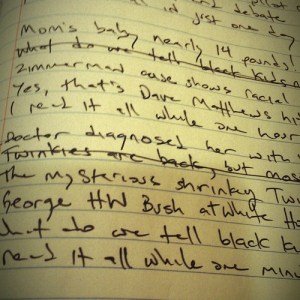 and debate
in just one day
Mom's baby nearly 14 pounds!
what do we tell black kids
Zimmerman case shows racial
Yes, that's Dave Matthews hit
I read it all while one hour
Doctor diagnosed her with
Twinkies are back, but most
The mysterious shrinky Twi
George HW Bush at White Ho
what do we tell black k
read it all while one minu